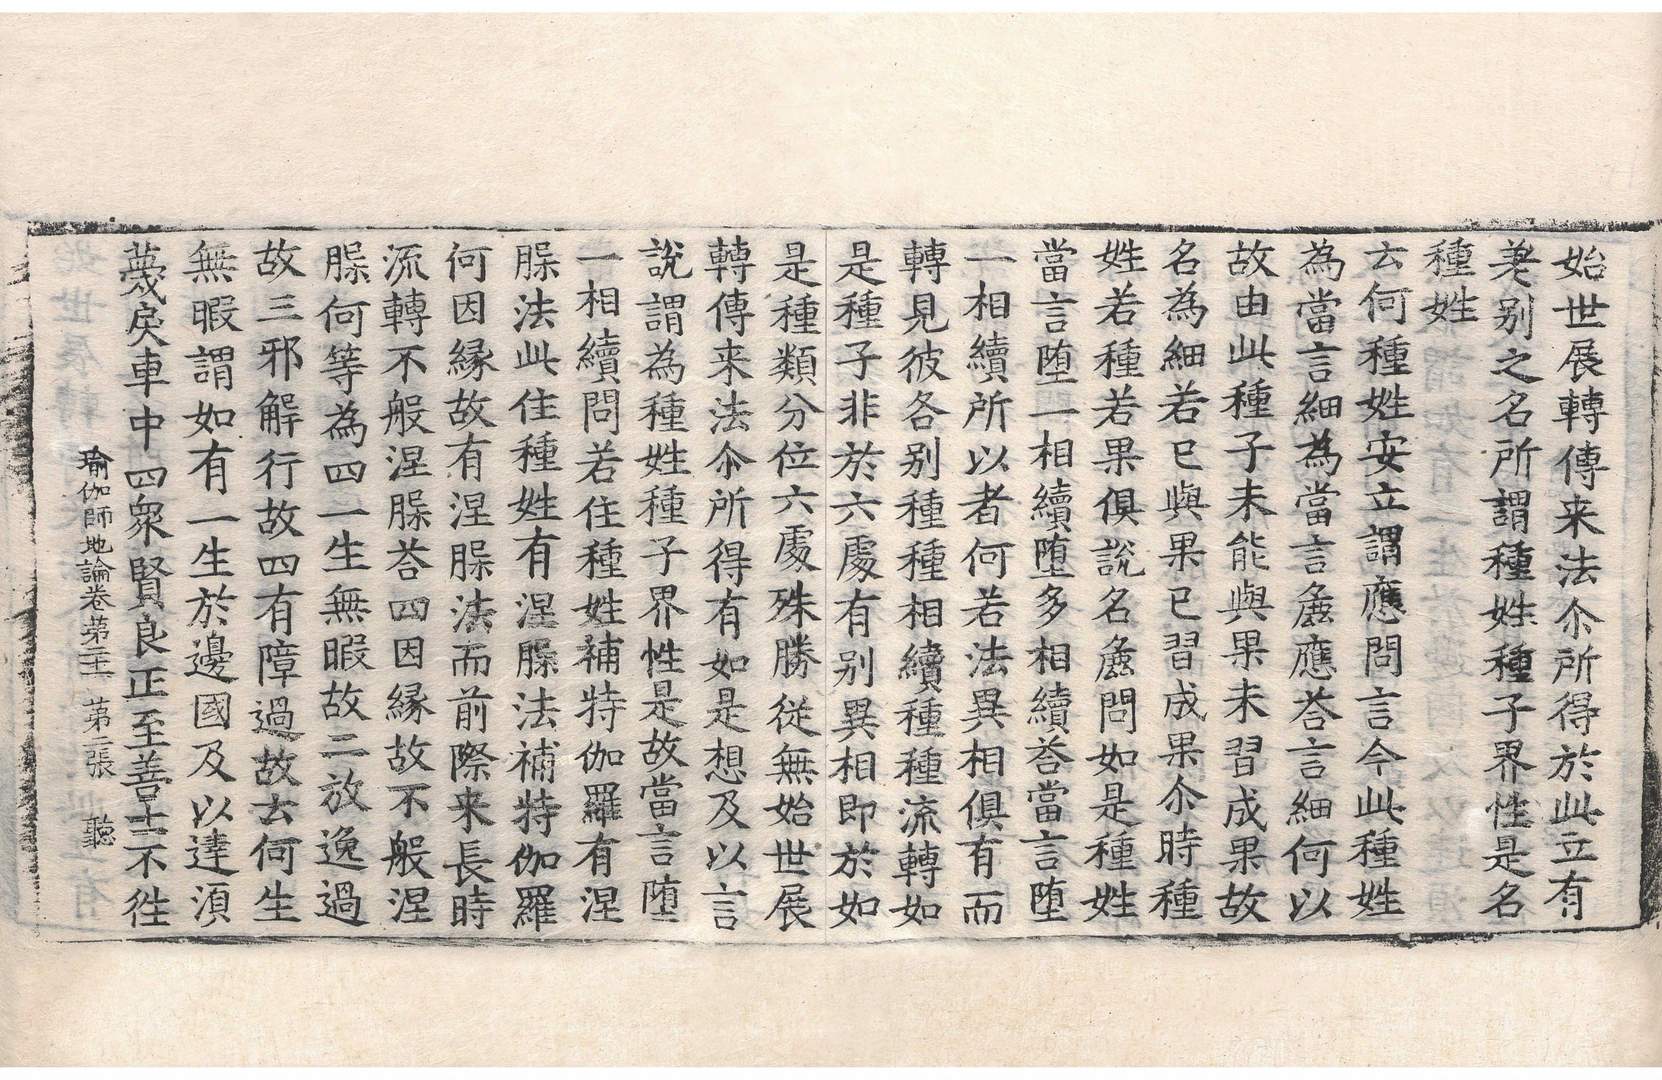 始世展轉傳来法尒所得於此立有
差別之名所謂種姓種子界性是名
種姓
云何種姓安立謂應問言今此種姓
為當言細為當言麁應荅言細何以
故由此種子未能與果未習成果故
名為細若已與果已習成果尒時種
姓若種若果俱說名麁問如是種姓
當言堕一相續堕多相續荅當言堕
一相續所以者何若法異相俱有而
轉見彼各別種種相續種種流轉如
是種子非於六處有別異相即於如
是種類分位六處殊勝從無始世展
轉傳来法尒所得有如是想及以言
說謂為種姓種子界性是故當言堕
一相續問若住種姓補特伽羅有涅
槃法此住種姓有涅槃法補特伽羅
何因縁故有涅槃法而前際来長時
流轉不般涅槃荅四因縁故不般涅
槃何等為四一生無暇故二放逸過
故三邪解行故四有障過故云何生
無暇謂如有一生於邊國及以達須
蔑戾車中四衆賢良正至善士不徃
瑜伽師地論卷苐二十一 苐二張 聽